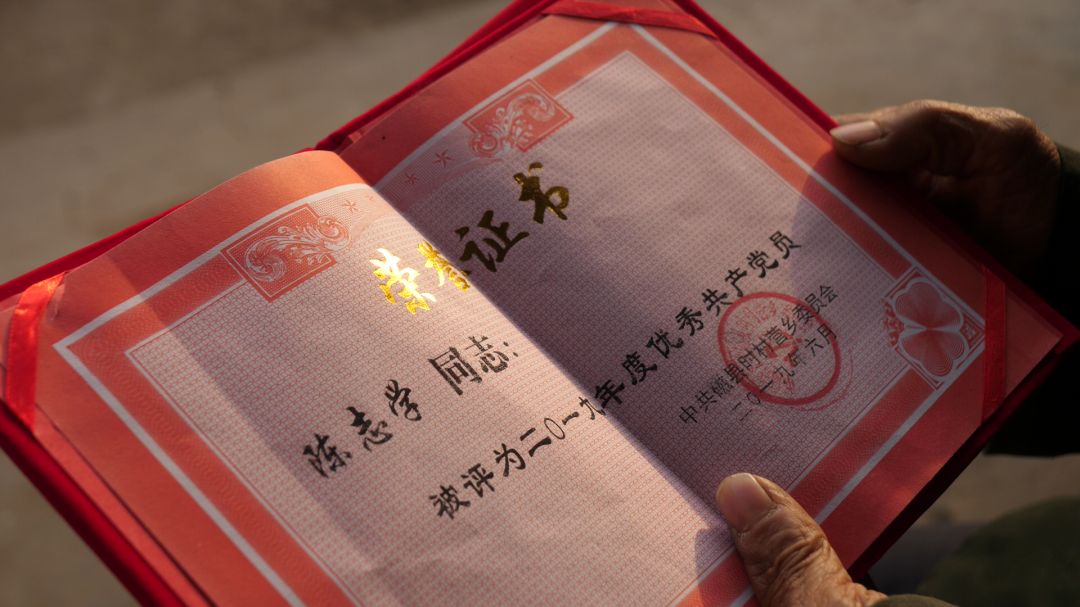 荣誉证书
陈志学 同志:
被评为二〇一九年度优秀共产党员
中共蠡县时村营乡委员会
二〇一九年六月